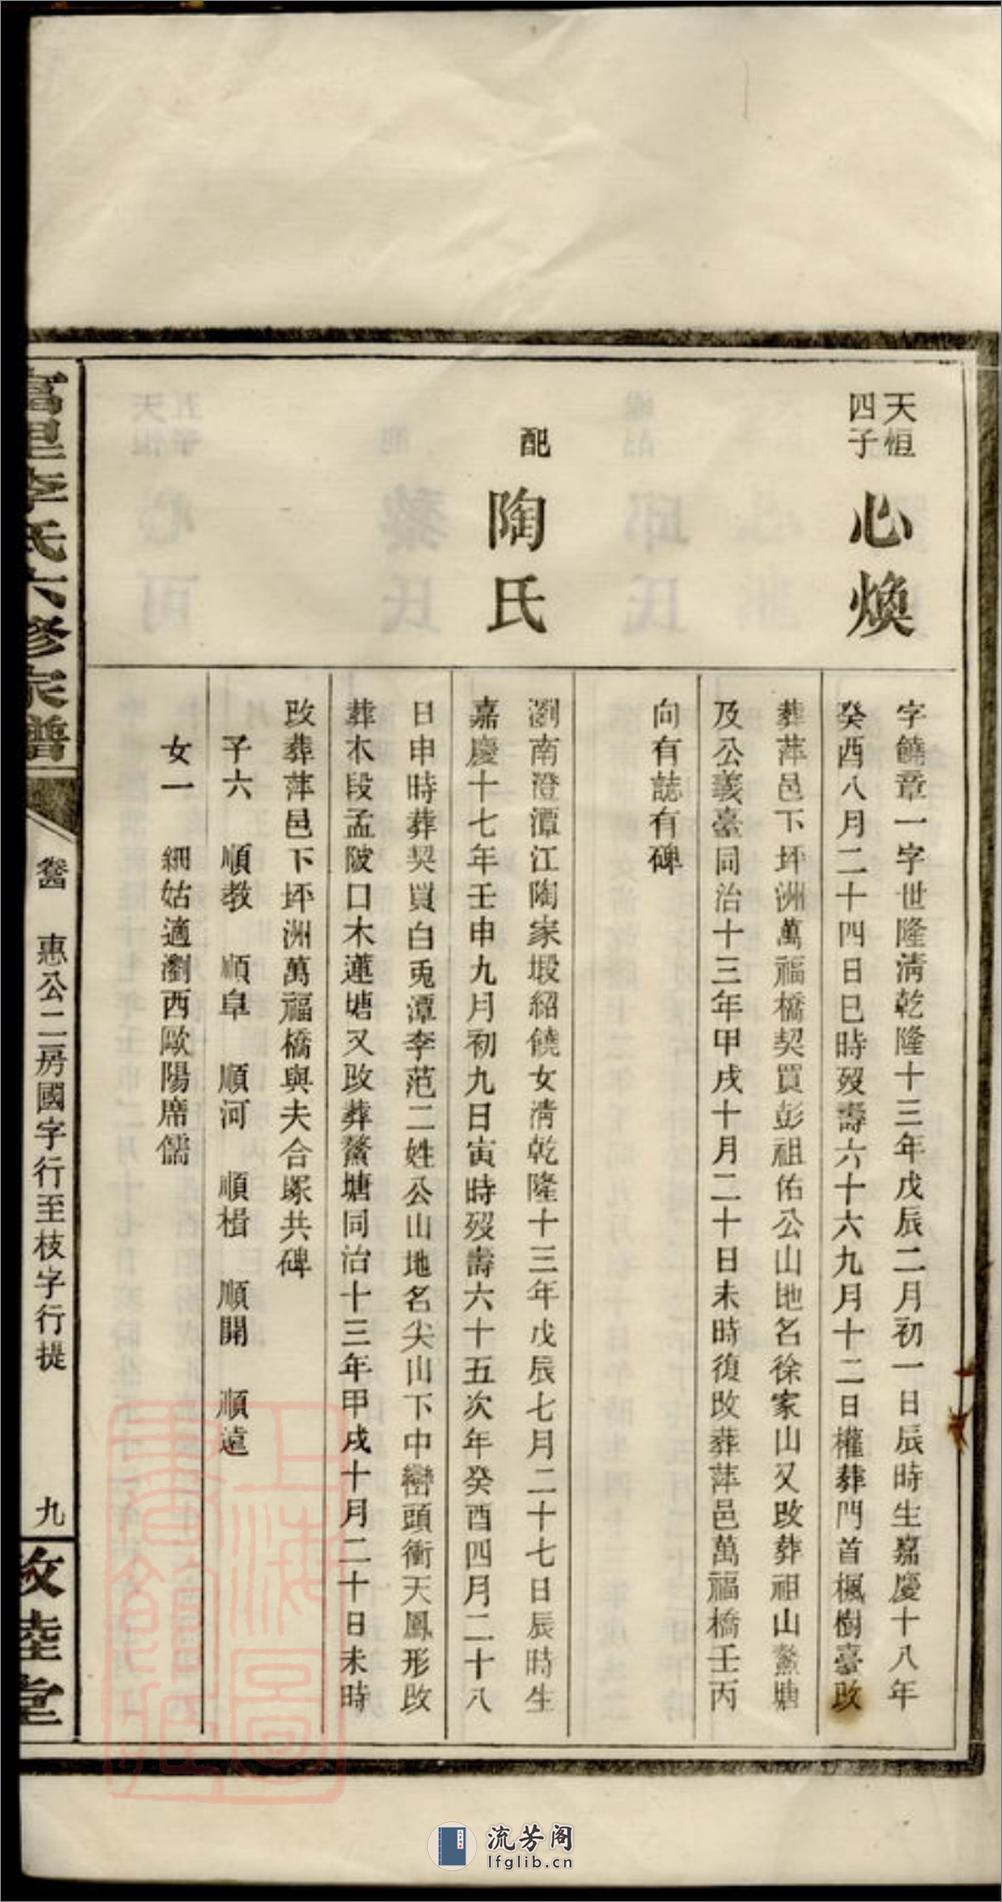 天恒
四子
心煥
字饒章一字世隆淸乾隆十三年戊辰二月初一日辰時生嘉慶十八年
癸酉八月二十四日巳時歿壽六十六九月十二日權葬門首楓樹臺改
葬萍邑下坪洲萬福橋契買彭祖佑公山地名徐家山又改葬祖山鰲塘
及公義臺同治十三年甲戌十月二十日未時復改葬萍邑萬福橋壬丙
向有誌有碑
配
陶氏
瀏南澄潭江陶家塅紹饒女淸乾隆十三年戊辰七月二十七日辰時生
嘉慶十七年壬申九月初九日寅時歿壽六十五次年癸酉四月二十八
日申時葬契買白兎潭李范二姓公山地名尖山下中巒頭衝天鳳形改
葬木段孟陂口木蓮塘又改葬鰲塘同治十三年甲戌十月二十日未時
改葬萍邑下坪洲萬福橋與夫合塚共碑
子六 順教 順阜 順河 順楫 順開 順遠
女一 細姑適瀏西歐陽席儒
富里李氏六修家譜
惠公二房國字行至枝字行提
九
敦睦堂
上海圖書館藏
流芳阁
lfglib.cn